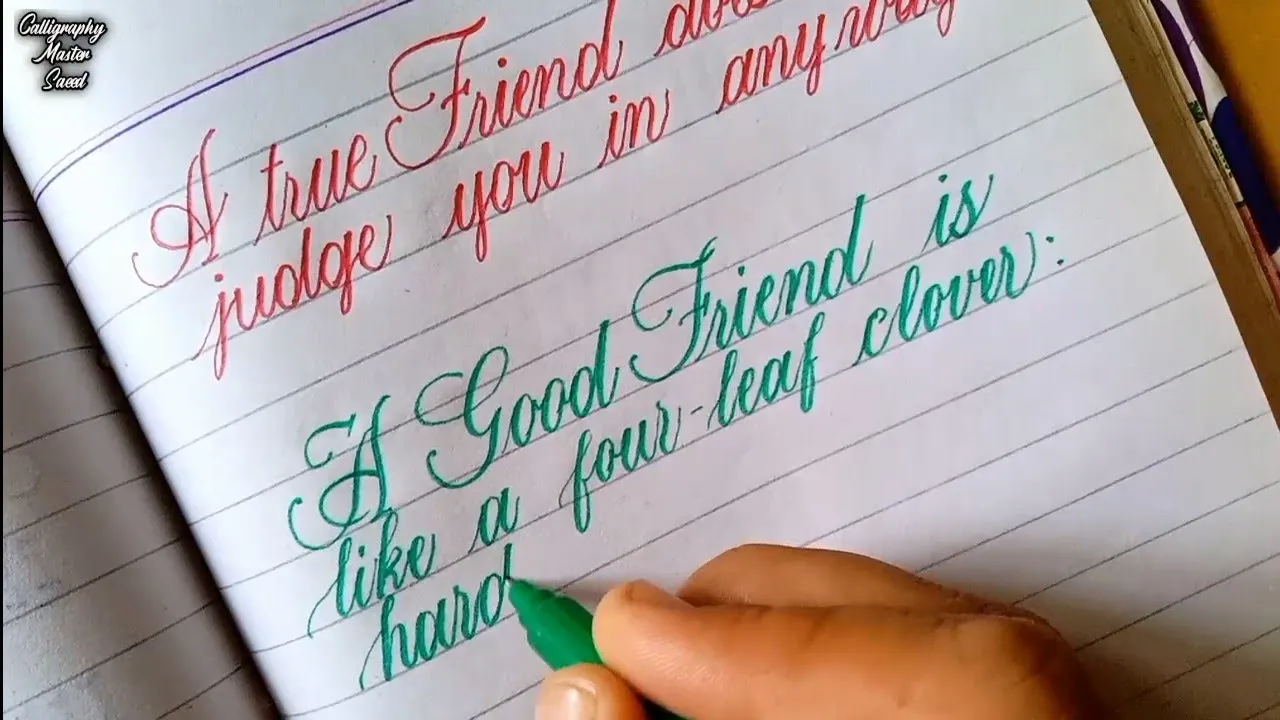 Calligraphy
Master
Saeed
A true Friend
judge you in anyway
A Good Friend is
like a four-leaf clover:
hard